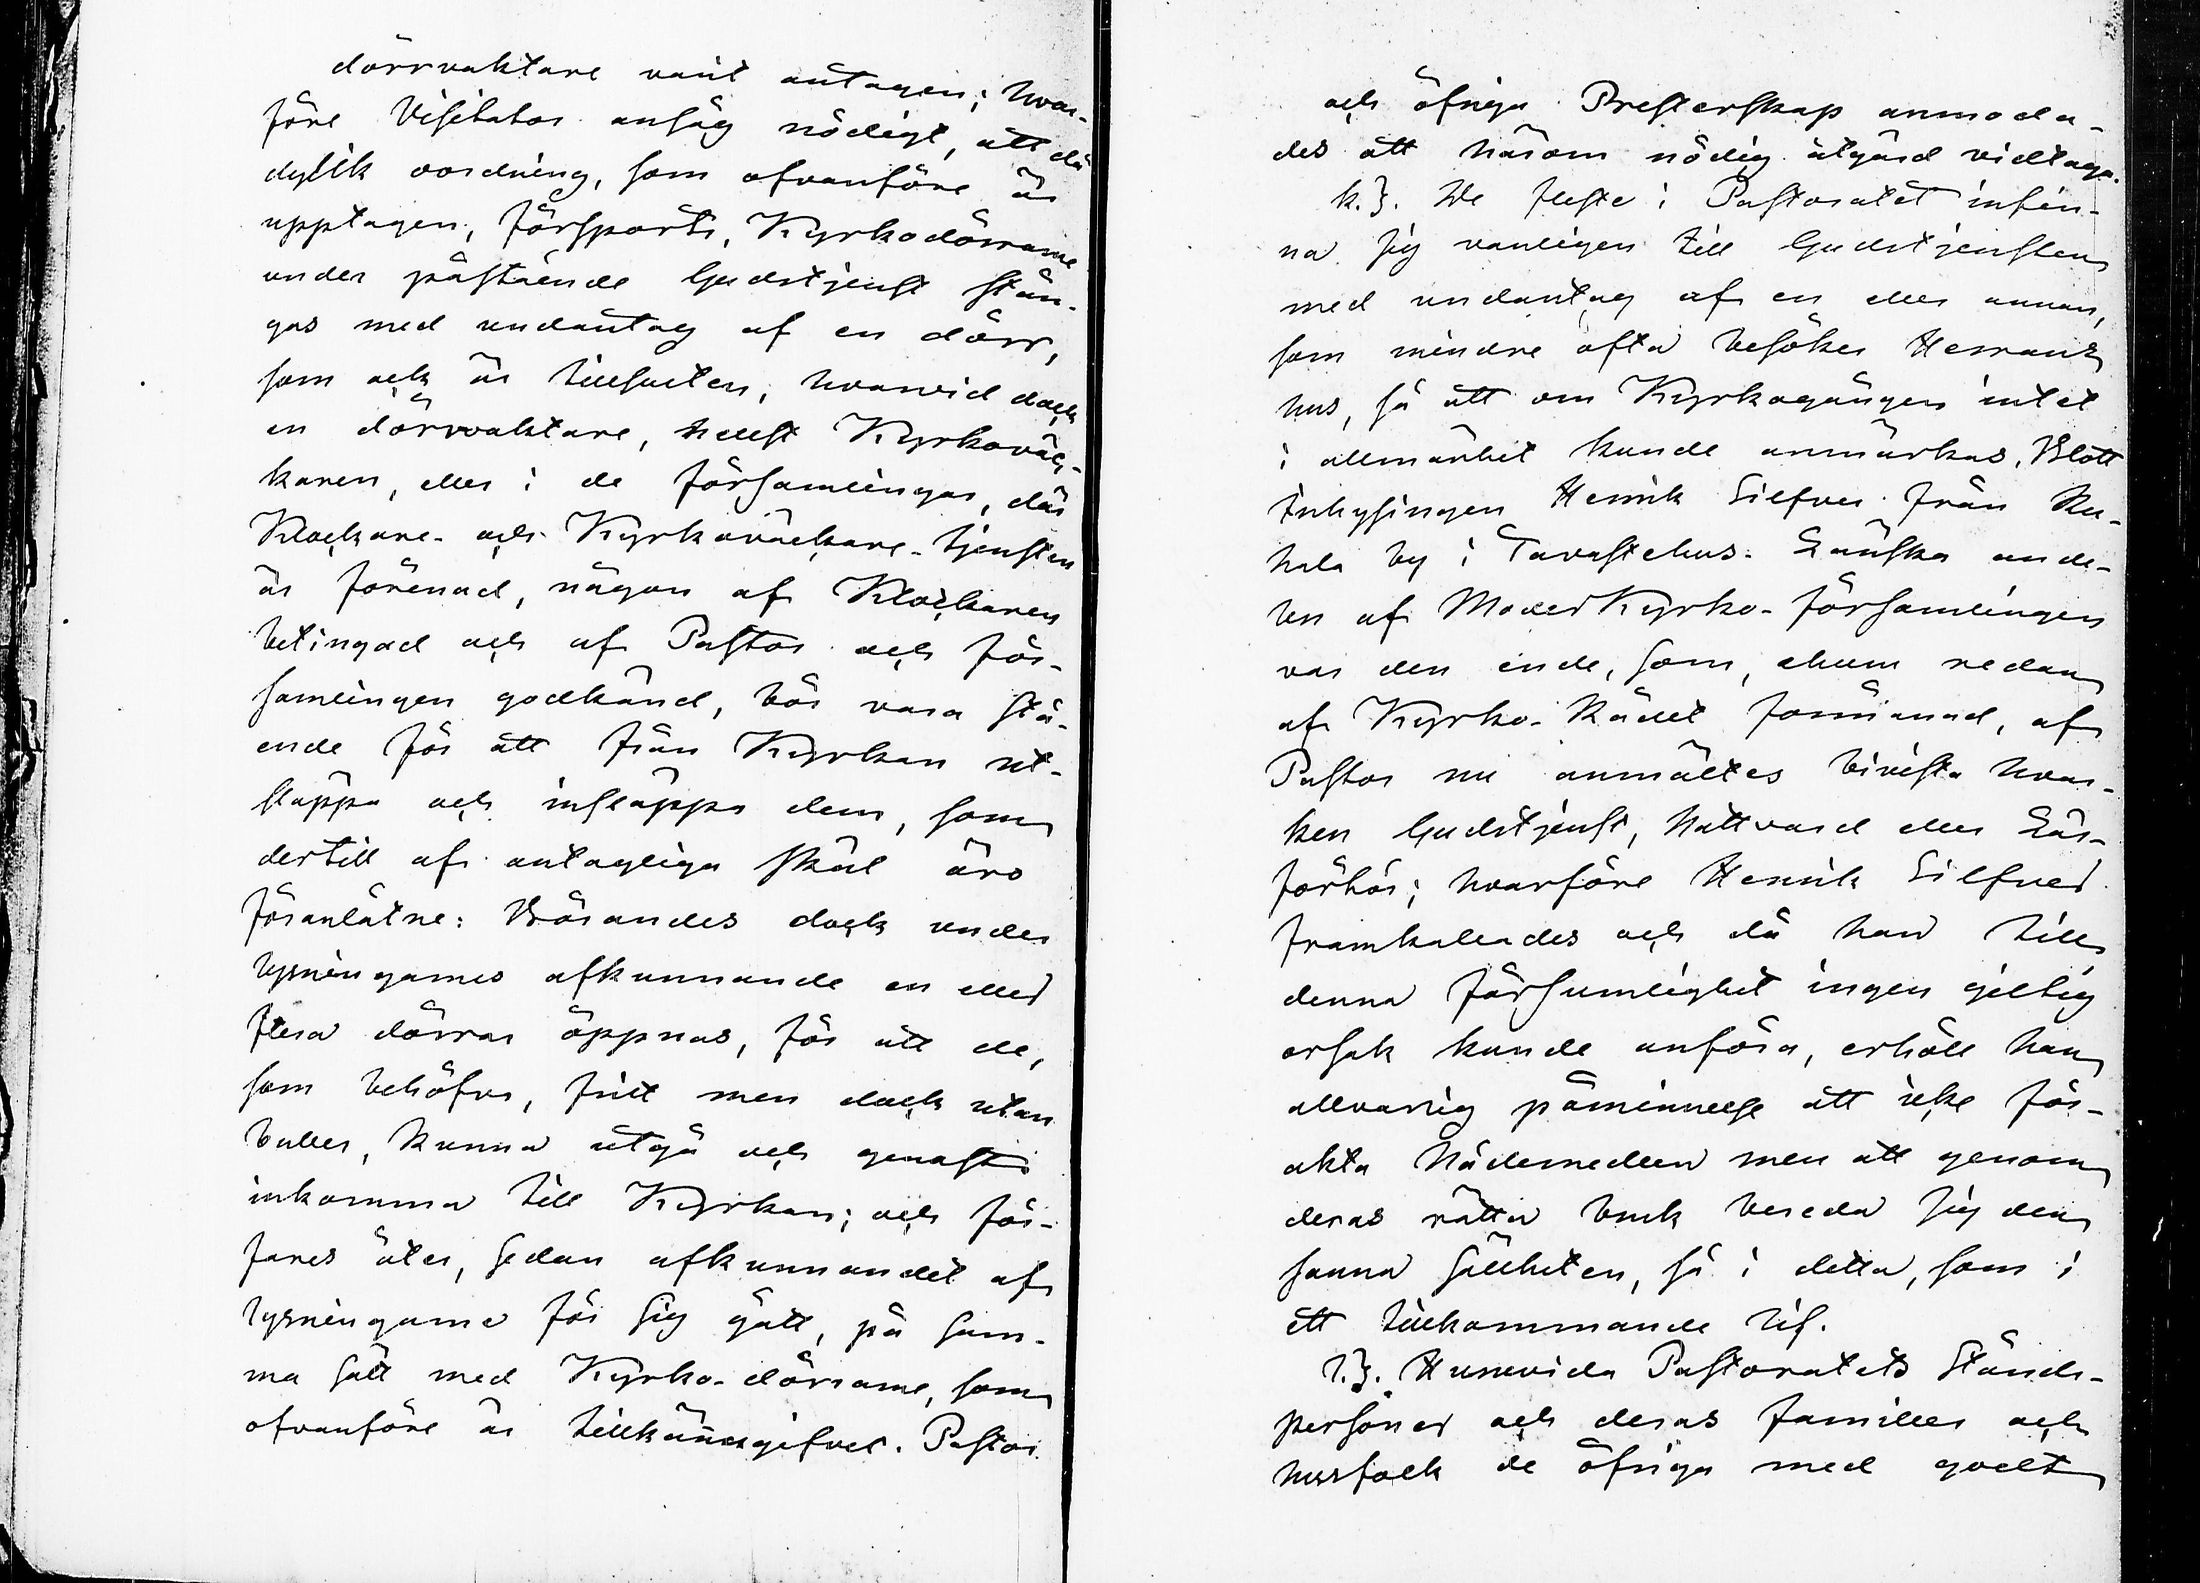 dörrvaktare varit antagen; hvar-
före Visitator ansåg nödigt, att då
dylik oordning, som ofvanföre är
upptagen, försports, Kyrkodörrarne
under påstående Gudstjenst stän-
gas med undantag af en dörr,
som ock är tillsluten, hvarvid dock
en dörrvaktare, helst Kyrkoväc-
karen, eller i de församlingar, där
Klockare- och Kyrkoväckare-tjensten
är förenad, någon af Klockaren
betingad och af Pastor och för-
samlingen godkänd, bör vara stå-
ende för att från Kyrkan ut-
släppa och insläppa dem, som
dertill af antagliga skäl äro
föranlåtne: Börandes dock under
lysningarnes afkunnande en eller
flera dörrar öppnas, för att de,
som behöfva, fritt men dock utan
buller, kunna utgå och genast
inkomma till Kyrkan; och för-
fares åter, sedan afkunnandet af
lysningarne för sig gått, på sam-
ma sätt med Kyrko-dörrarne, som
ofvanföre är tillkännagifvet. Pastor
och öfriga Presterskap anmoda-
des att härom nödig åtgärd vidtaga.
k.). De fleste i Pastoratet infin-
na sig vanligen till Gudstjensten
med undantag af en eller annan,
som mindre ofta besöker Herrans
hus, så att om Kyrkogången intet
i allmänhet kunde anmärkas. Blott
Inhysingen Henrik Silfver från
hala by i Tavastehus-Länska ande-
len af Moder Kyrko-församlingen
var den ende, som, ehuru redan
af Kyrko-Rådet förmanad, af
Pastor nu anmältes bivista hvar-
ken Gudstjenst, Nattvard eller Läs-
förhör; hvarföre Henrik Silfver
framkallades och då han till
denna försumlighet ingen giltig
orsak kunde anföra, erhöll han
allvarlig påminnelse att icke för-
akta Nådemedlen men att genom
deras rätta bruk bereda sig den
sanna sällheten, så i detta, som i
ett tillkommande lif.
l.). Huruvida Pastoratets Stånds-
personer och deras familler och
husfolk de öfriga med godt